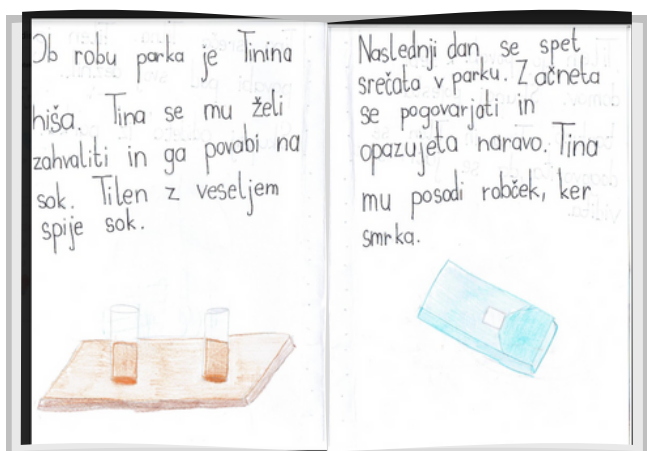 Ob robu parka je Tinina
hiša. Tina se mu želi
zahvaliti in ga povabi na
sok. Tilen z veseljem
spije sok.
Naslednji dan se spet
srečata v parku. Začneta
se pogovarjati in
opazujeta naravo. Tina
mu posodi robček, ker
smrka.